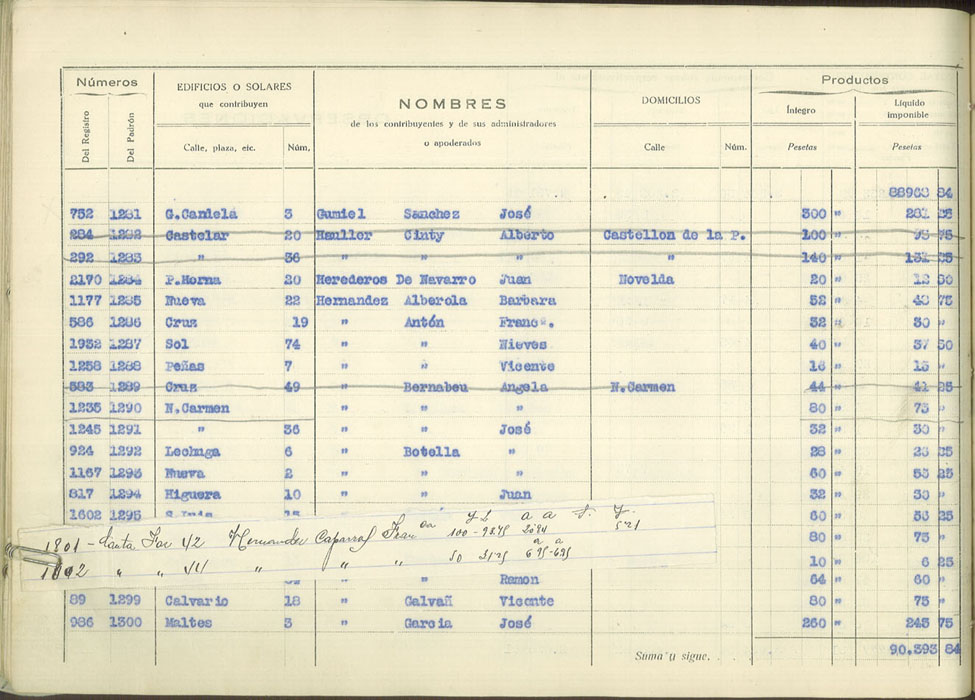 Números EDIFICIOS O SOLARES que contribuyen NOMBRES de los contribuyentes y de sus administradores o apoderados DOMICILIOS Productos
Íntegro Líquido imponible
Del Registro Del Padrón Calle, plaza, etc. Núm. Calle Núm. Pesetas Pesetas
88963 84
752 1281 G.Candela 3 Gumiel Sanchez José 300 " 281 25
284 1282 Castelar 20 Hauller Cinty Alberto Castellon de la P. 100 " 93 75
292 1283 " 36 " " " " 140 " 131 25
2170 1284 P.Horna 20 Herederos De Navarro Juan Novelda 20 " 12 50
1177 1285 Nueva 22 Hernandez Alberola Barbara 52 " 48 75
586 1286 Cruz 19 " Antón Franc⁰. 32 " 30 "
1952 1287 Sol 74 " " Nieves 40 " 37 50
1258 1288 Peñas 7 " " Vicente 16 " 15 "
583 1289 Cruz 49 " Bernabeu Angela N.Carmen 44 " 41 25
1235 1290 N.Carmen " " " 80 " 75 "
1245 1291 " 36 " " José 32 " 30 "
924 1292 Lechuga 6 " Botella " 28 " 25
1167 1293 Nueva 2 " " " 60 " 25
817 1294 Higuera 10 " " Juan 32 " 30 "
1602 1295 60 " 25
1801 - Santa Fax 42 Hernandez Caparros Fran 100 - 93.75 80 " 75 "
1802 " " 44 " " " 50 10 " 6 25
" Ramon 64 " 60 "
89 1299 Calvario 18 " Galvañ Vicente 80 " 75 "
986 1300 Maltes 3 " Garcia José 260 " 243 75
Suma y sigue. 90.393 84